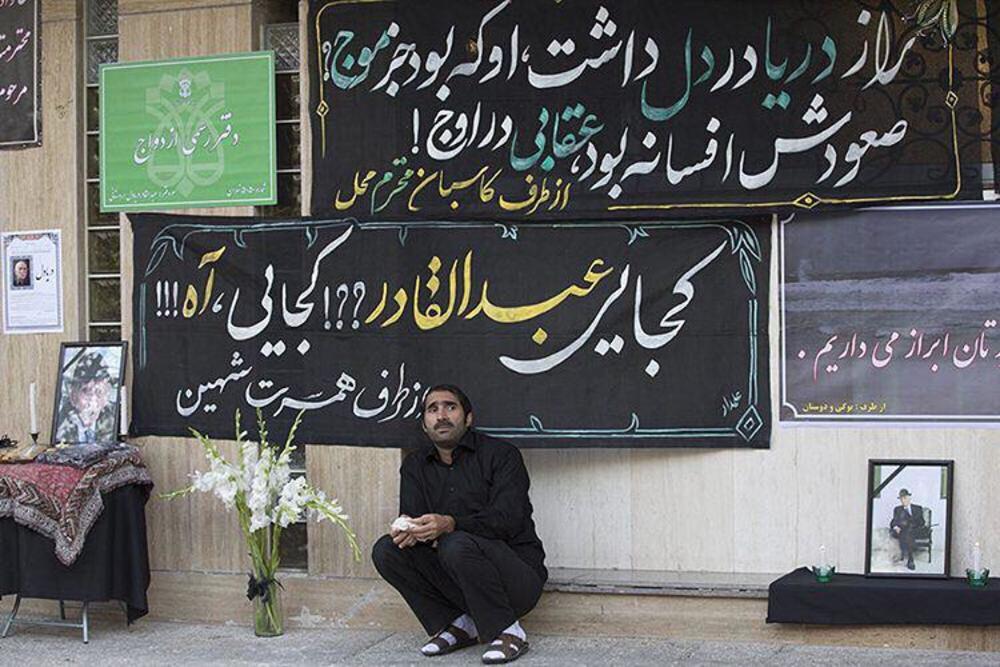 راز دریا در دل داشت، او که بود جز موج؟
صعودش افسانه بود، عقابی در اوج!
از طرف کاسبان محترم محل
دفتر رسمی ازدواج
کجایی عبدالقادر؟؟؟! کجایی، آه!!!
از طرف همسرت شهین
عمداد
تان ابراز می داریم.
از طرف: بوکی و دوستان
دریادل
محترم
مرحوم